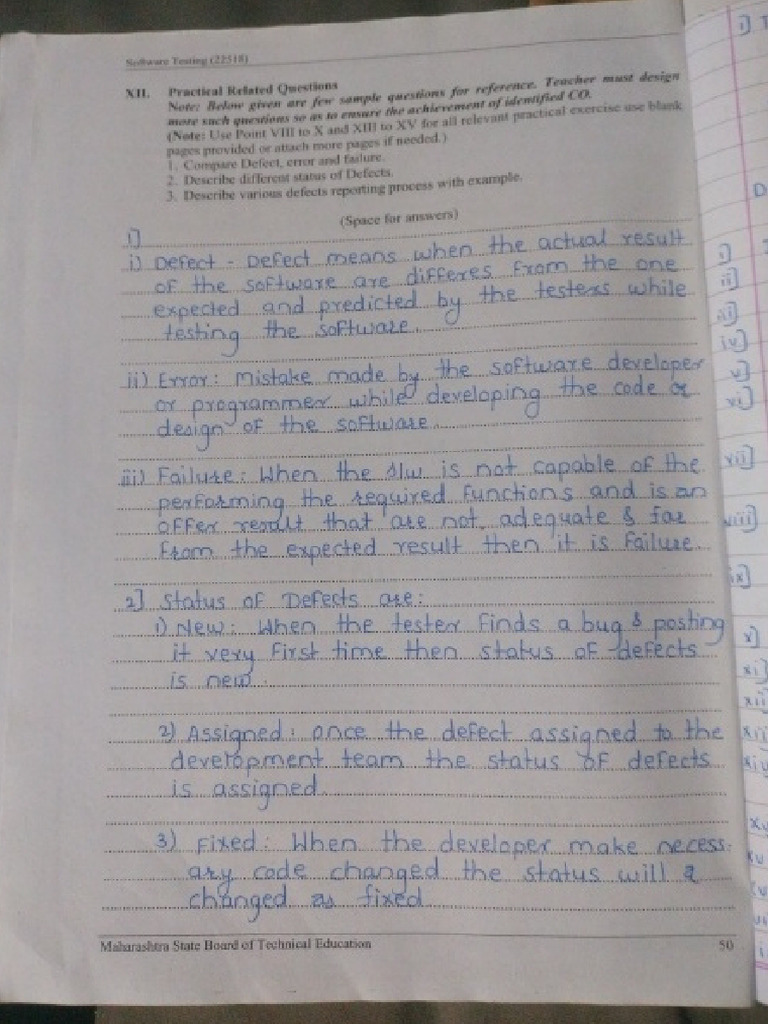 Software Testing (22518)
XII. Practical Related Questions
Note: Below given are few sample questions for reference. Teacher must design
more such questions so as to ensure the achievement of identified CO.
(Note: Use Point VIII to X and XIII to XV for all relevant practical exercise use blank
pages provided or attach more pages if needed.)
1. Compare Defect, error and failure.
2. Describe different status of Defects.
3. Describe various defects reporting process with example.
(Space for answers)
1]
i) Defect - Defect means when the actual result
of the software are differes from the one
expected and predicted by the testers while
testing the software.
ii) Error: Mistake made by the software developer
or programmer while developing the code or
design of the software.
iii) Failure: When the s/w is not capable of the
performing the required functions and is an
offer result that are not adequate & far
from the expected result then it is failure.
2] Status of Defects are:
1) New: When the tester finds a bug & posting
it very first time then status of defects
is new.
2) Assigned: once the defect assigned to the
development team the status of defects
is assigned.
3) Fixed: When the developer make necess
ary code changed the status will
changed as fixed
Maharashtra State Board of Technical Education 50
i)
D
i]
ii]
iii]
iv]
v]
vi]
vii]
viii]
ix]
x]
xi]